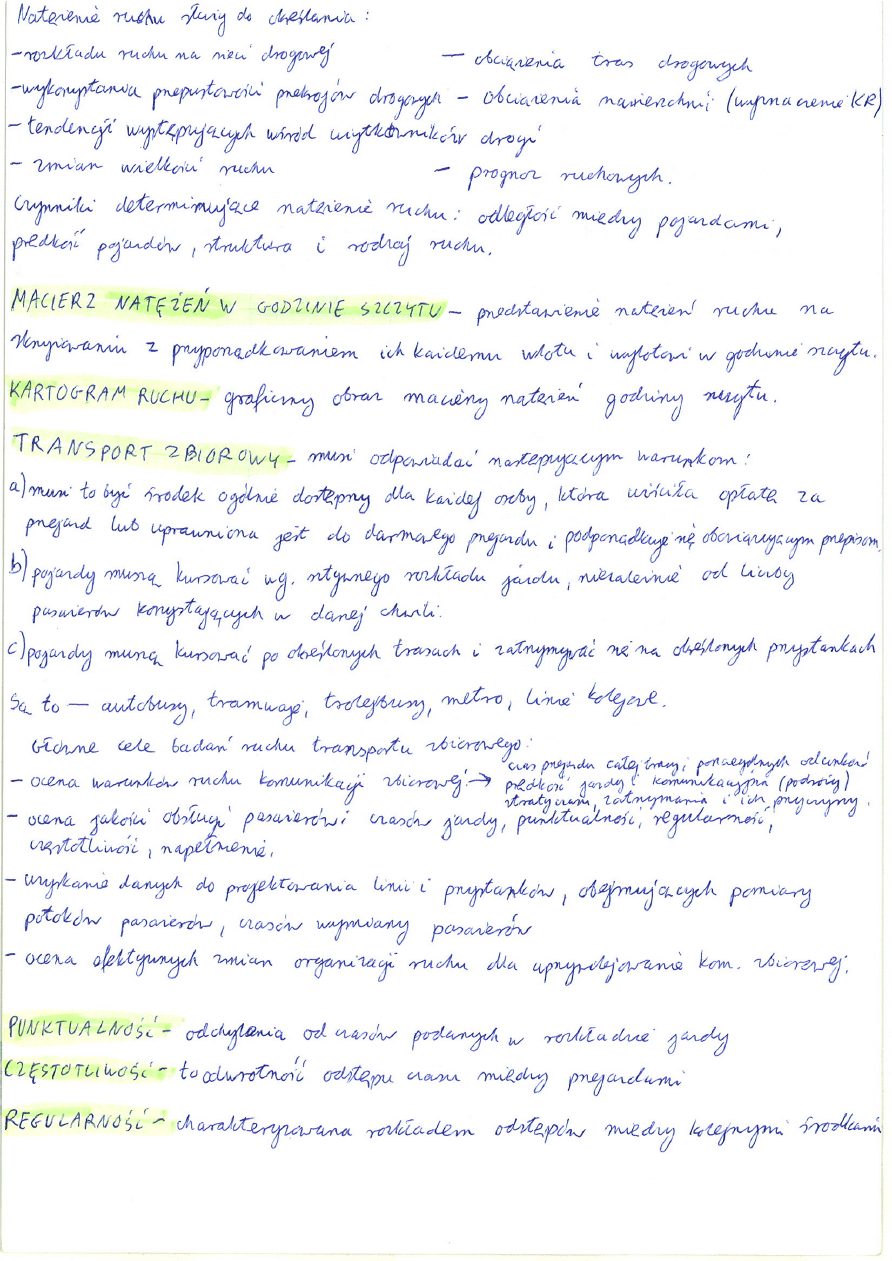 Natężenie ruchu służy do określania:
- rozkładu ruchu na sieci drogowej — obciążenia tras drogowych
- wykorzystania przepustowości przekrojów drogowych - obciążenia nawierzchni (wyznaczenie KR)
- tendencji występujących wśród użytkowników drogi
- zmian wielkości ruchu - prognoz ruchowych.
Czynniki determinujące natężenie ruchu: odległość między pojazdami,
prędkość pojazdów, struktura i rodzaj ruchu.
MACIERZ NATĘŻEŃ W GODZINIE SZCZYTU - przedstawienie natężeń ruchu na
skrzyżowaniu z przyporządkowaniem ich każdemu wlotu i wylotowi w godzinie szczytu.
KARTOGRAM RUCHU - graficzny obraz macierzy natężeń godziny szczytu.
TRANSPORT ZBIOROWY - musi odpowiadać następującym warunkom:
a) musi to być środek ogólnie dostępny dla każdej osoby, która uiściła opłatę za
przejazd lub uprawniona jest do darmowego przejazdu i podporządkuje się obowiązującym przepisom.
b) pojazdy muszą kursować wg. sztywnego rozkładu jazdu, niezależnie od liczby
pasażerów korzystających w danej chwili.
c) pojazdy muszą kursować po określonych trasach i zatrzymywać się na określonych przystankach
Są to — autobusy, tramwaje, trolejbusy, metro, linie kolejowe.
Główne cele badań ruchu transportu zbiorowego:
- ocena warunków ruchu komunikacji zbiorowej → czas przejazdu całej trasy i poszczególnych odcinków
prędkość jazdy i komunikacyjna (podróży)
straty czasu, zatrzymania i ich przyczyny.
- ocena jakości obsługi pasażerów: czasów jazdy, punktualność, regularność,
częstotliwość, napełnienie.
- uzyskanie danych do projektowania linii i przystanków, obejmujących pomiary
potoków pasażerów, czasów wymiany pasażerów
- ocena efektywnych zmian organizacji ruchu dla uprzywilejowanie kom. zbiorowej.
PUNKTUALNOŚĆ - odchylenia od czasów podanych w rozkładzie jazdy
CZĘSTOTLIWOŚĆ - to odwrotność odstępu czasu między przejazdami
REGULARNOŚĆ - charakteryzowana rozkładem odstępów między kolejnymi środkami